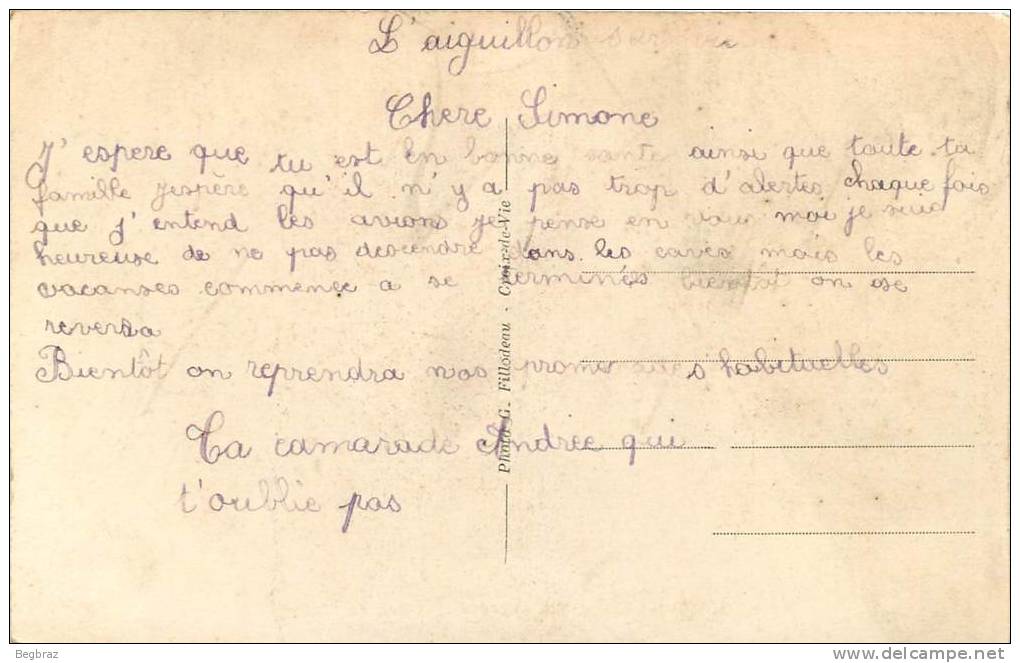 L'aiguillon sur vie
Chere Simone
J'espere que tu est en bonne sante ainsi que toute ta
famille jespère qu'il n'y a pas trop d'alertes chaque fois
que j'entend les avions je pense en vous moi je suis
heureuse de ne pas descendre dans les caves mais les
vacanses commence a se terminés bientot on se
reverra
Bientôt on reprendra nos promenades habituelles
Ta camarade Andree qui
t'oublie pas
Photo G. Fillodeau - Croix-de-Vie
Begbraz
delcampe.net